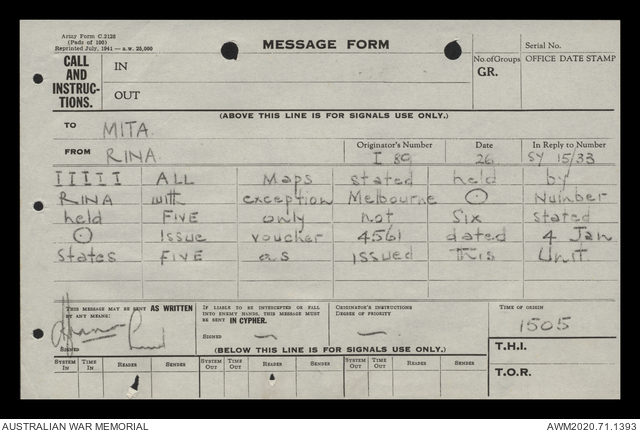 Army Form C.2128
(Pads of 100)
Reprinted July, 1941—A.W. 25,000
MESSAGE FORM
Serial No.
CALL AND INSTRUC-TIONS.
IN
OUT
No. of Groups
GR.
OFFICE DATE STAMP
(ABOVE THIS LINE IS FOR SIGNALS USE ONLY.)
TO MITA
FROM RINA
Originator's Number
I 89
Date
26
In Reply to Number
SY 15/33
IIIII ALL Maps stated held by
RINA with exception Melbourne ⊙ Number
held FIVE only not Six stated
⊙ Issue voucher 4561 dated 4 Jan
States FIVE as Issued This Unit
THIS MESSAGE MAY BE SENT AS WRITTEN
BY ANY MEANS:
SIGNED
IF LIABLE TO BE INTERCEPTED OR FALL
INTO ENEMY HANDS, THIS MESSAGE MUST
BE SENT IN CYPHER.
SIGNED
ORIGINATOR'S INSTRUCTIONS
DEGREE OF PRIORITY
TIME OF ORIGIN
1505
(BELOW THIS LINE IS FOR SIGNALS USE ONLY.)
T.H.I.
T.O.R.
SYSTEM IN TIME IN READER SENDER SYSTEM OUT TIME OUT READER SENDER SYSTEM OUT TIME OUT READER SENDER
AUSTRALIAN WAR MEMORIAL
AWM2020.71.1393